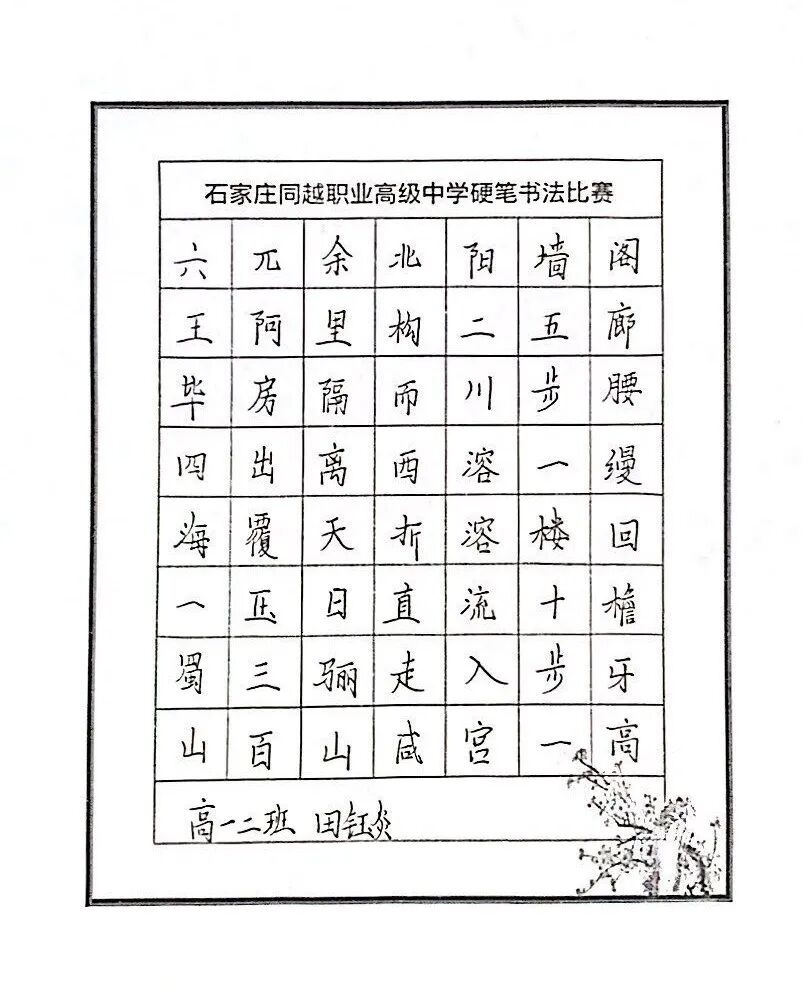 石家庄同越职业高级中学硬笔书法比赛
六王毕四海一蜀山
兀阿房出覆压三百
余里隔离天日骊山
北构而西折直走咸
阳二川溶溶流入宫
墙五步一楼十步一
阁廊腰缦回檐牙高
高一二班 田钰炎